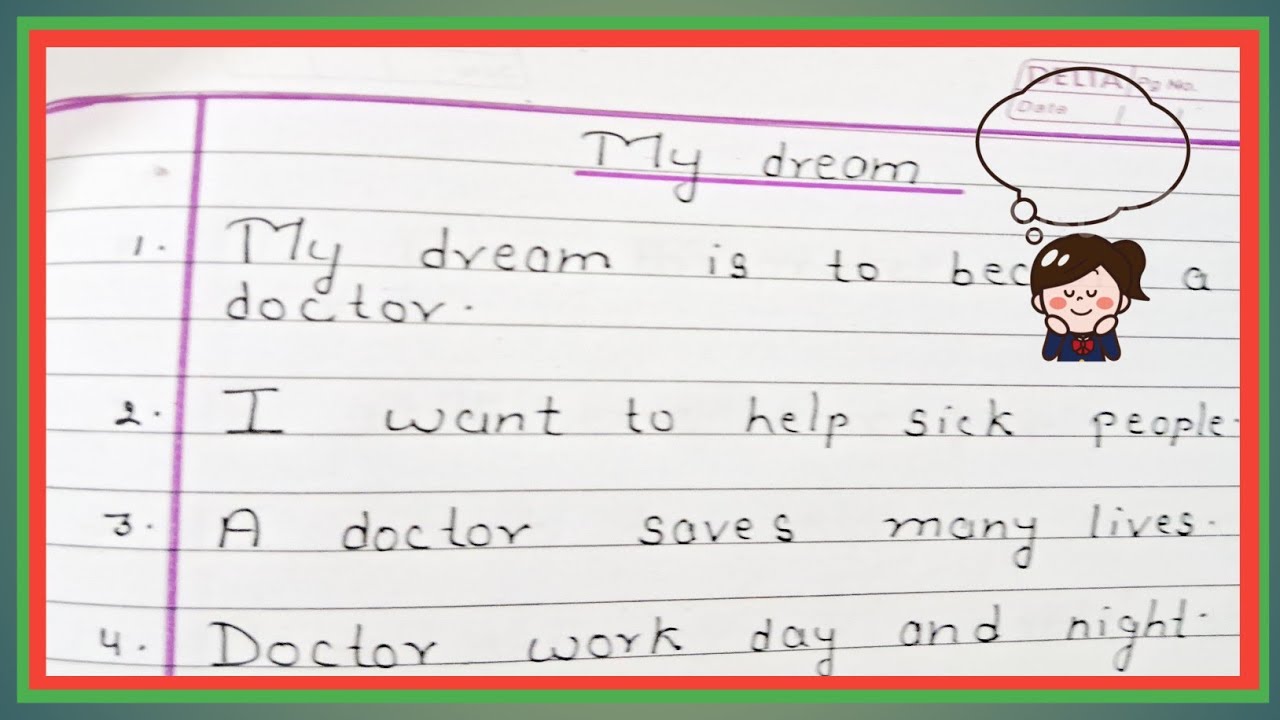 DELTA Pg No.
Date / /
My dream
1. My dream is to bec a
doctor.
2. I want to help sick people.
3. A doctor saves many lives.
4. Doctor work day and night.